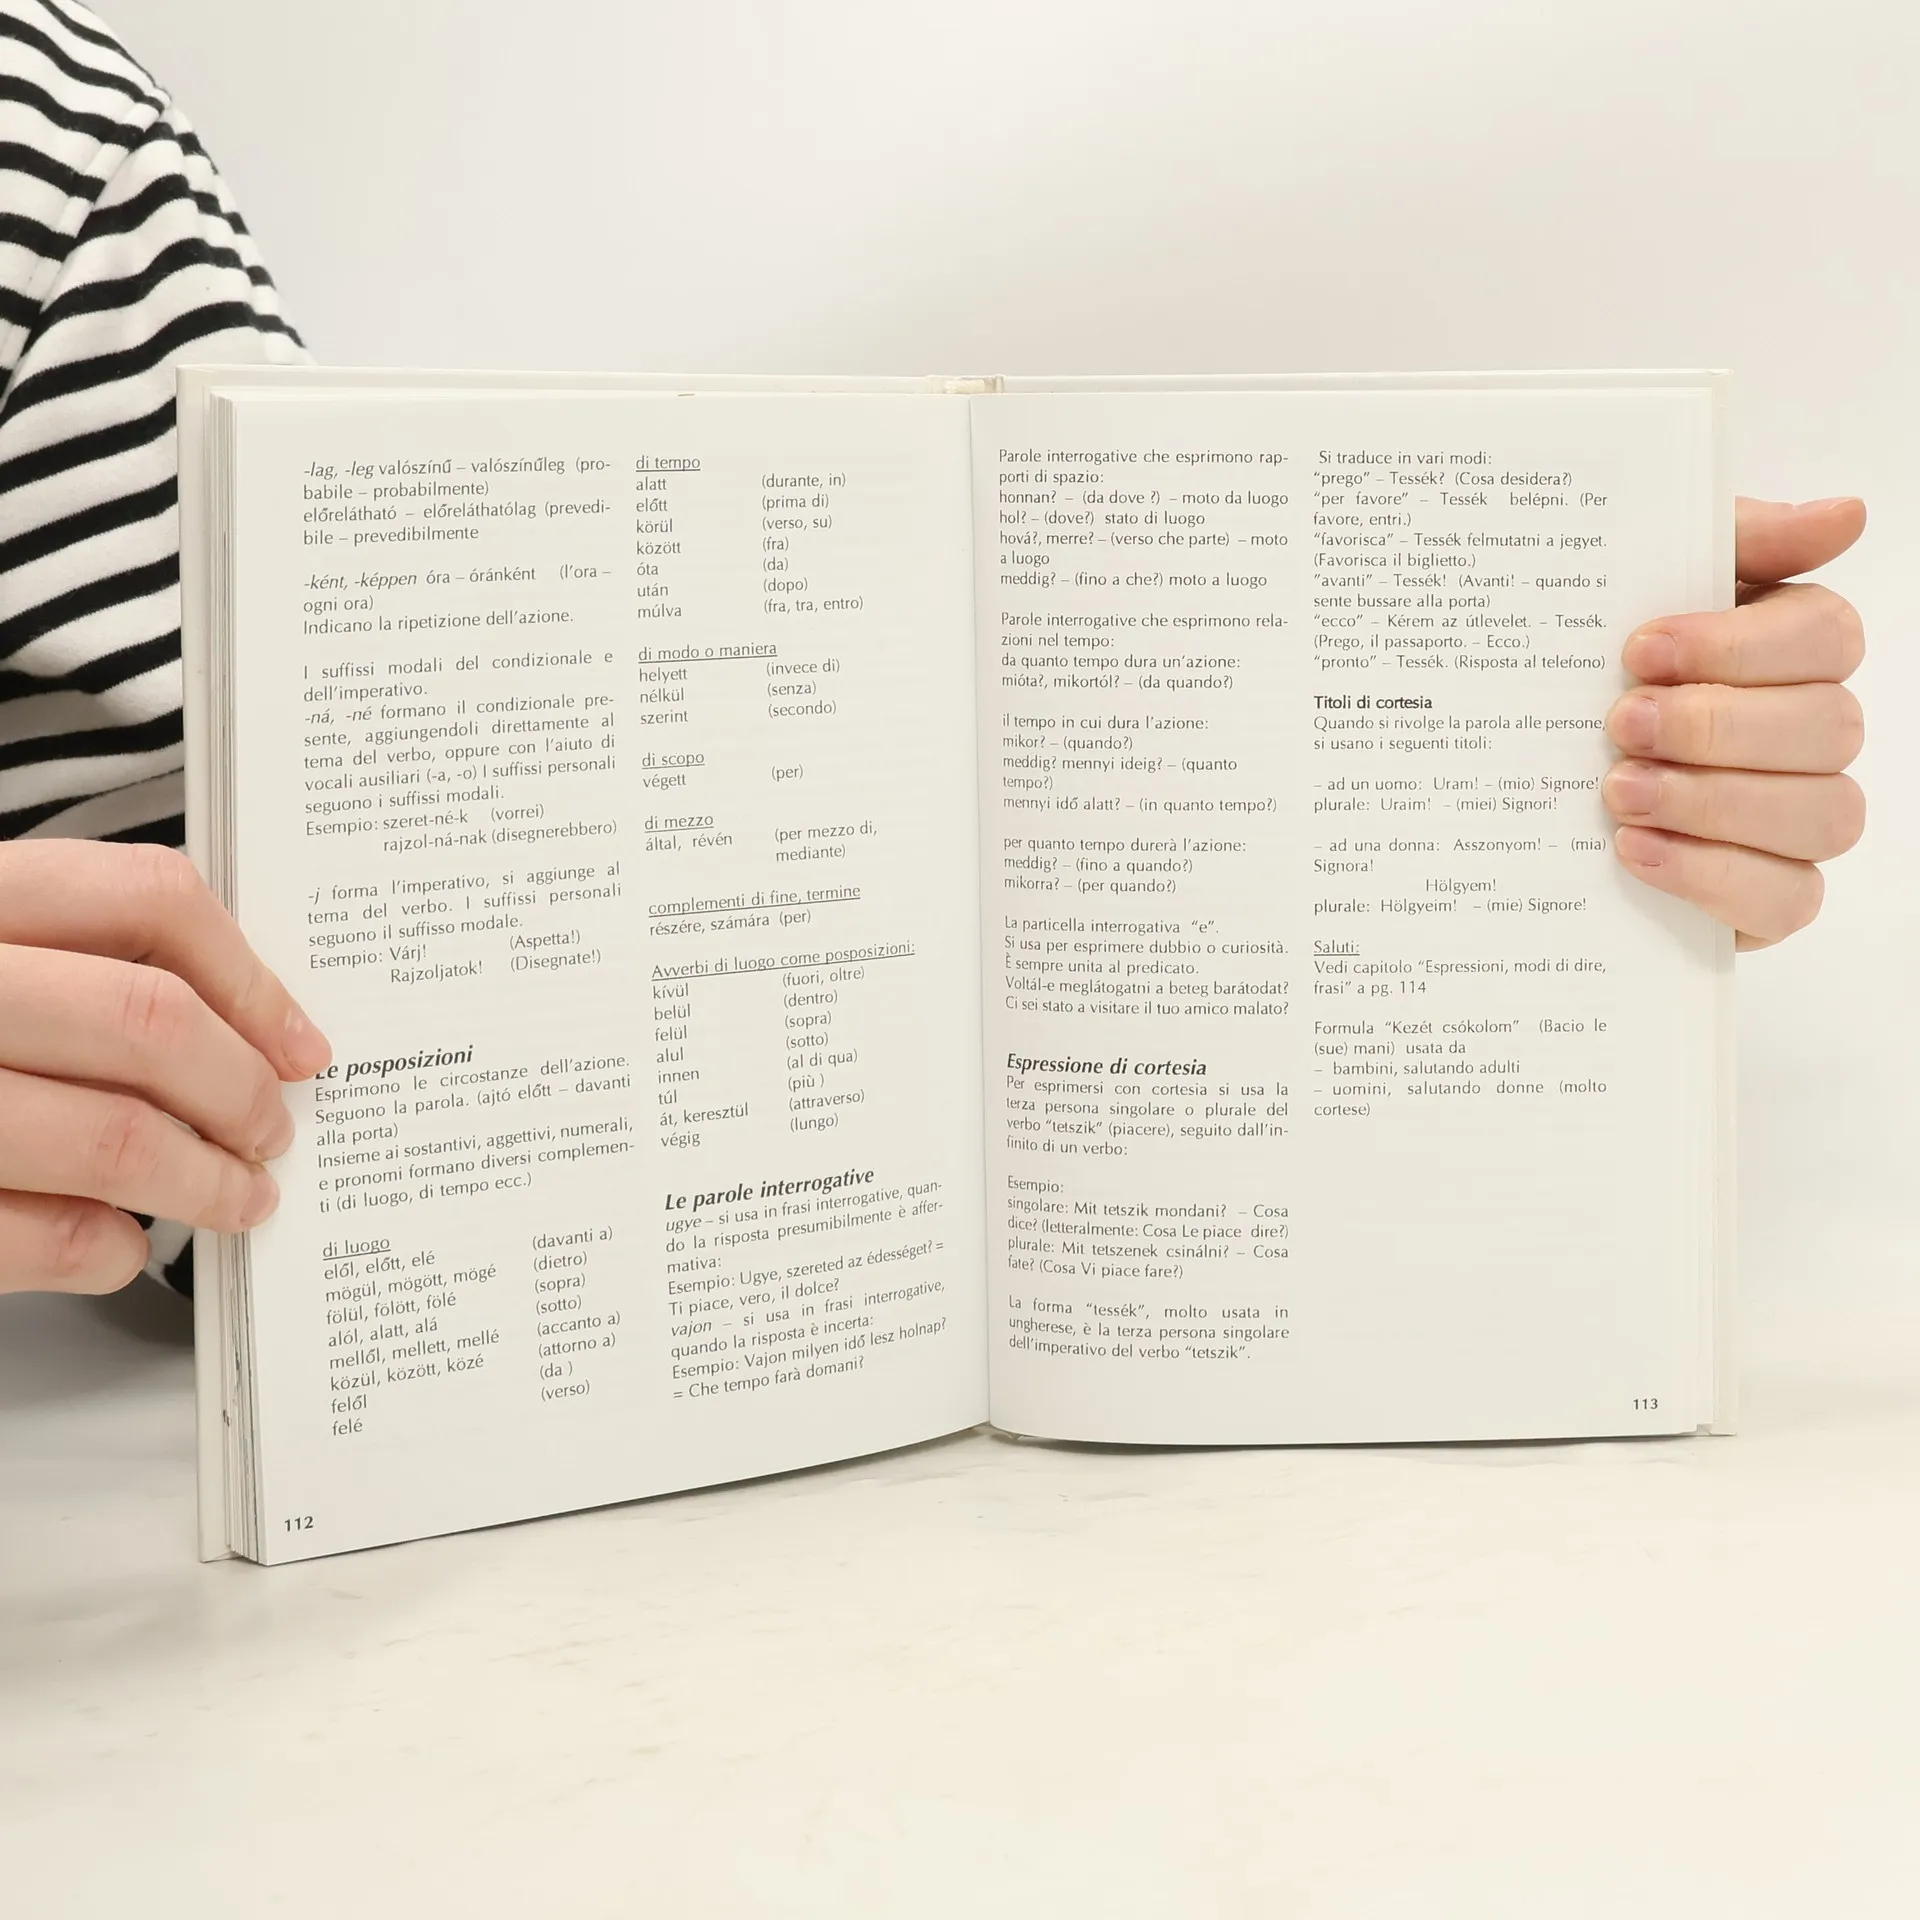 -lag, -leg valószínű – valószínűleg (pro-
babile – probabilmente)
előrelátható – előreláthatólag (prevedi-
bile – prevedibilmente
-ként, -képpen óra – óránként (l'ora –
ogni ora)
Indicano la ripetizione dell'azione.
I suffissi modali del condizionale e
dell'imperativo.
-ná, -né formano il condizionale pre-
sente, aggiungendoli direttamente al
tema del verbo, oppure con l'aiuto di
vocali ausiliari (-a, -o) I suffissi personali
seguono i suffissi modali.
Esempio: szeret-né-k (vorrei)
rajzol-ná-nak (disegnerebbero)
-j forma l'imperativo, si aggiunge al
tema del verbo. I suffissi personali
seguono il suffisso modale.
Esempio: Várj! (Aspetta!)
Rajzoljatok! (Disegnate!)
Le posposizioni
Esprimono le circostanze dell'azione.
Seguono la parola. (ajtó előtt – davanti
alla porta)
Insieme ai sostantivi, aggettivi, numerali,
e pronomi formano diversi complemen-
ti (di luogo, di tempo ecc.)
di luogo
elől, előtt, elé (davanti a)
mögül, mögött, mögé (dietro)
fölül, fölött, fölé (sopra)
alól, alatt, alá (sotto)
mellől, mellett, mellé (accanto a)
közül, között, közé (attorno a)
felől (da )
felé (verso)
112
di tempo
alatt (durante, in)
előtt (prima di)
körül (verso, su)
között (fra)
óta (da)
után (dopo)
múlva (fra, tra, entro)
di modo o maniera
helyett (invece di)
nélkül (senza)
szerint (secondo)
di scopo
végett (per)
di mezzo
által, révén (per mezzo di,
mediante)
complementi di fine, termine
részére, számára (per)
Avverbi di luogo come posposizioni:
kívül (fuori, oltre)
belül (dentro)
felül (sopra)
alul (sotto)
innen (al di qua)
túl (più )
át, keresztül (attraverso)
végig (lungo)
Le parole interrogative
ugye – si usa in frasi interrogative, quan-
do la risposta presumibilmente è affer-
mativa:
Esempio: Ugye, szereted az édességet? =
Ti piace, vero, il dolce?
vajon – si usa in frasi interrogative,
quando la risposta è incerta:
Esempio: Vajon milyen idő lesz holnap?
= Che tempo farà domani?
Parole interrogative che esprimono rap-
porti di spazio:
honnan? – (da dove ?) – moto da luogo
hol? – (dove?) stato di luogo
hová?, merre? – (verso che parte) – moto
a luogo
meddig? – (fino a che?) moto a luogo
Parole interrogative che esprimono rela-
zioni nel tempo:
da quanto tempo dura un'azione:
mióta?, mikortól? – (da quando?)
il tempo in cui dura l'azione:
mikor? – (quando?)
meddig? mennyi ideig? – (quanto
tempo?)
mennyi idő alatt? – (in quanto tempo?)
per quanto tempo durerà l'azione:
meddig? – (fino a quando?)
mikorra? – (per quando?)
La particella interrogativa “e”.
Si usa per esprimere dubbio o curiosità.
È sempre unita al predicato.
Voltál-e meglátogatni a beteg barátodat?
Ci sei stato a visitare il tuo amico malato?
Espressione di cortesia
Per esprimersi con cortesia si usa la
terza persona singolare o plurale del
verbo “tetszik” (piacere), seguito dall'in-
finito di un verbo:
Esempio:
singolare: Mit tetszik mondani? – Cosa
dice? (letteralmente: Cosa Le piace dire?)
plurale: Mit tetszenek csinálni? – Cosa
fate? (Cosa Vi piace fare?)
La forma “tessék”, molto usata in
ungherese, è la terza persona singolare
dell'imperativo del verbo “tetszik”.
Si traduce in vari modi:
“prego” – Tessék? (Cosa desidera?)
“per favore” – Tessék belépni. (Per
favore, entri.)
“favorisca” – Tessék felmutatni a jegyet.
(Favorisca il biglietto.)
“avanti” – Tessék! (Avanti! – quando si
sente bussare alla porta)
“ecco” – Kérem az útlevelet. – Tessék.
(Prego, il passaporto. – Ecco.)
“pronto” – Tessék. (Risposta al telefono)
Titoli di cortesia
Quando si rivolge la parola alle persone,
si usano i seguenti titoli:
– ad un uomo: Uram! – (mio) Signore!
plurale: Uraim! – (miei) Signori!
– ad una donna: Asszonyom! – (mia)
Signora!
Hölgyem!
plurale: Hölgyeim! – (mie) Signore!
Saluti:
Vedi capitolo “Espressioni, modi di dire,
frasi” a pg. 114
Formula “Kezét csókolom” (Bacio le
(sue) mani) usata da
– bambini, salutando adulti
– uomini, salutando donne (molto
cortese)
113